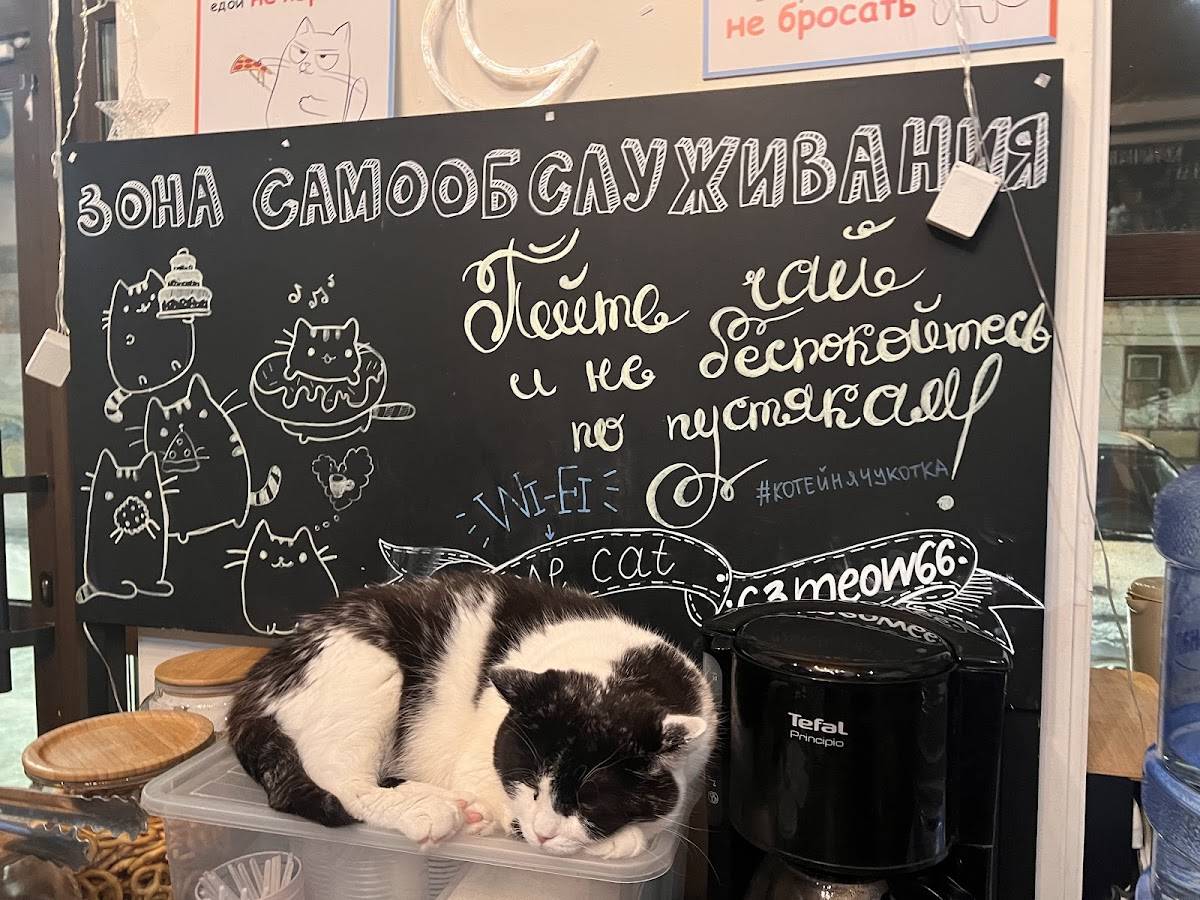 едой не
не бросать
ЗОНА САМООБСЛУЖИВАНИЯ
Пейте чай
и не беспокойтесь
по пустякам!
WI-FI
#КОТЕЙНЯЧУКОТКА
cat
c3meow66
Tefal
Principio